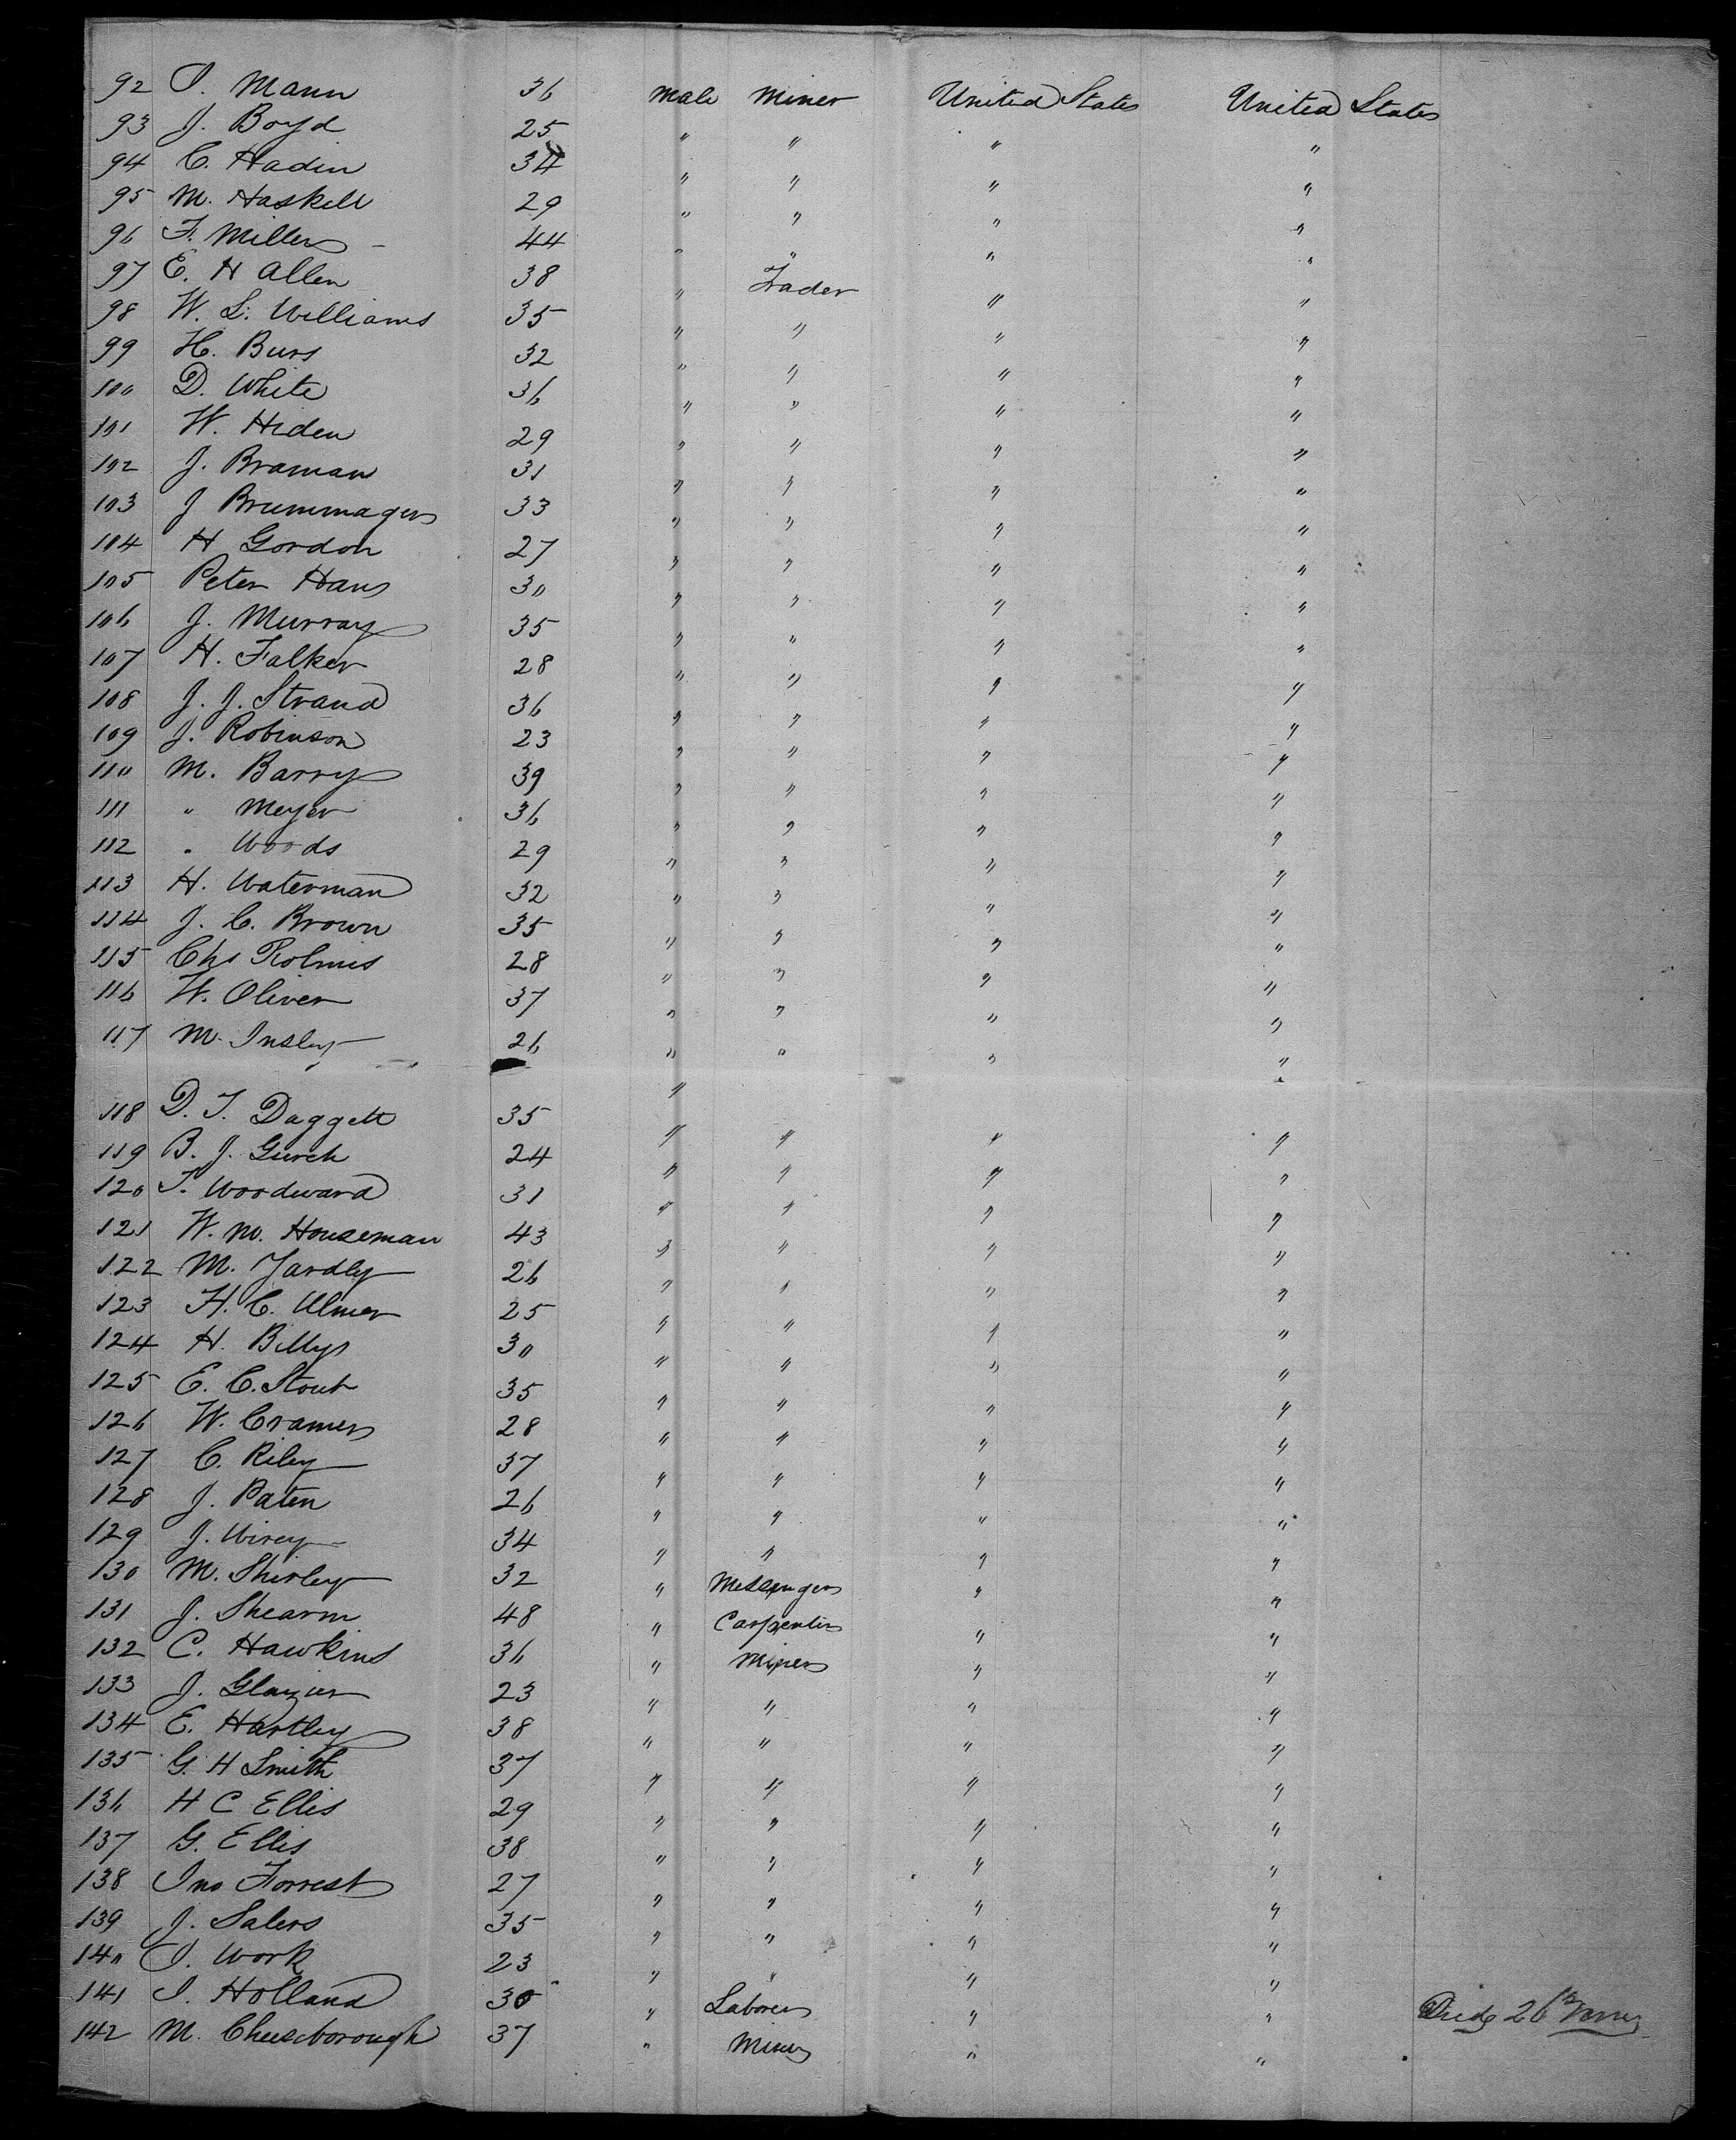 92 J. Mann 36 male Miner United States United States
93 J. Boyd 25 " " " "
94 C. Hadin 34 " " " "
95 M. Haskell 29 " " " "
96 F. Miller 44 " " " "
97 E. H Allen 38 " Trader " "
98 W. L. Williams 35 " " " "
99 H. Burs 32 " " " "
100 D. White 36 " " " "
101 W. Hiden 29 " " " "
102 J. Braman 31 " " " "
103 J Brummager 33 " " " "
104 H Gordon 27 " " " "
105 Peter Hans 30 " " " "
106 J. Murray 35 " " " "
107 H. Falker 28 " " " "
108 J. J. Strand 36 " " " "
109 J. Robinson 23 " " " "
110 M. Barry 39 " " " "
111 " Meyer 36 " " " "
112 " Woods 29 " " " "
113 H. Waterman 32 " " " "
114 J. C. Brown 35 " " " "
115 Chs Rolmis 28 " " " "
116 W. Oliver 37 " " " "
117 M. Insley 26 " " " "
"
118 D. T. Daggett 35 " " " "
119 B. J. Gurch 24 " " " "
120 T. Woodward 31 " " " "
121 W. M. Houseman 43 " " " "
122 M. Yardly 26 " " " "
123 H. C. Ulmer 25 " " " "
124 H. Billys 30 " " " "
125 E. C. Stout 35 " " " "
126 W. Cramer 28 " " " "
127 C. Riley 37 " " " "
128 J. Paten 26 " " " "
129 J. Virey 34 " " " "
130 M. Shirley 32 " Messenger " "
131 J. Shearm 48 " Carpenter " "
132 C. Hawkins 36 " Miner " "
133 J. Glazier 23 " " " "
134 E. Hartley 38 " " " "
135 G. H Smith 37 " " " "
136 H C Ellis 29 " " " "
137 G. Ellis 38 " " " "
138 Jno Forrest 27 " " " "
139 J. Salers 35 " " " "
140 J. Work 23 " " " "
141 J. Holland 30 " Laborer " " Died 26th
142 M. Cheeseborough 37 " Miner " "